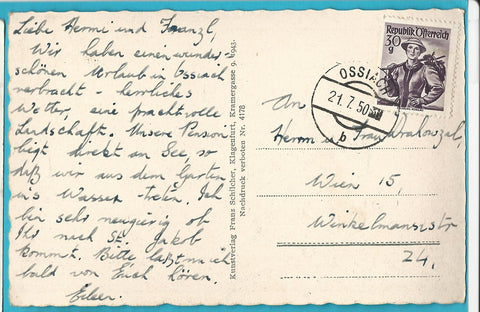 Liebe Hermi und Franzl,
Wir haben einen wunder-
schönen Urlaub in Ossiach
verbracht - herrliches
Wetter, eine prachtvolle
Landschaft. Unsere Pension
liegt direkt am See, so
daß wir aus dem Garten
in's Wasser treten. Ich
bin sehr neugierig ob
Ihr nach St. Jakob
kommt. Bitte laßt mich
bald von Euch hören.
Kunstverlag Franz Schilcher, Klagenfurt, Kramergasse 9. 1945
Nachdruck verboten Nr. 4178
Republik Österreich
30
g
OSSIACH
21.7.50
b
An
Herrn u. Frau
Wien 15,
Winkelmannstr
24.